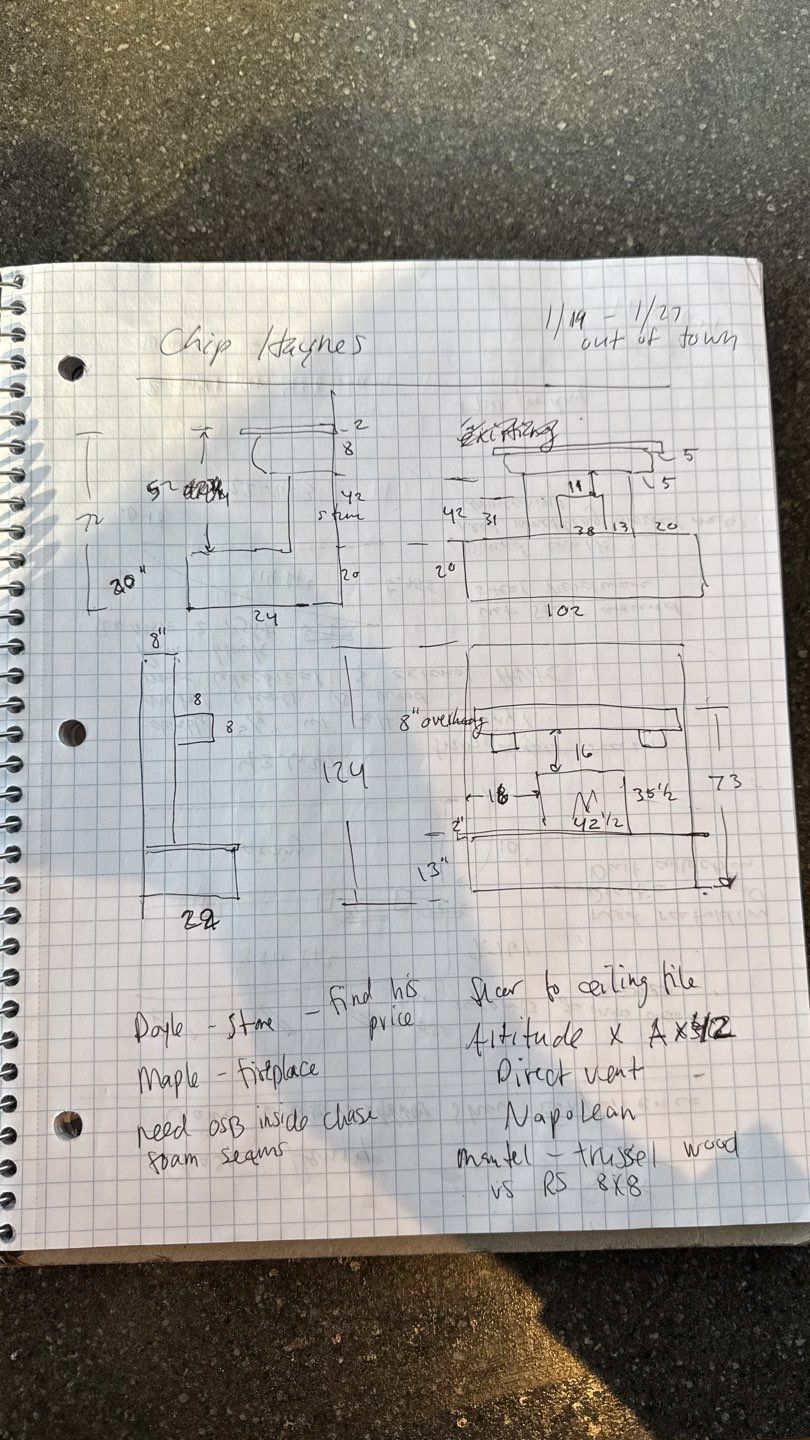 Chip Haynes
1/19 - 1/27
out of town
2
8
52
42
stone
72
20"
20
24
Existing
5
5
11
42
31
38
13
20
20
102
8"
8
8
8" overhang
124
16
18
35 1/2
42 1/2
73
2"
13"
Doyle - Stone - find his
price
Maple - fireplace
need OSB inside chase
foam seams
floor to ceiling tile
Altitude X A X 42
Direct vent -
Napolean
mantel - trussel wood
vs RS 8X8